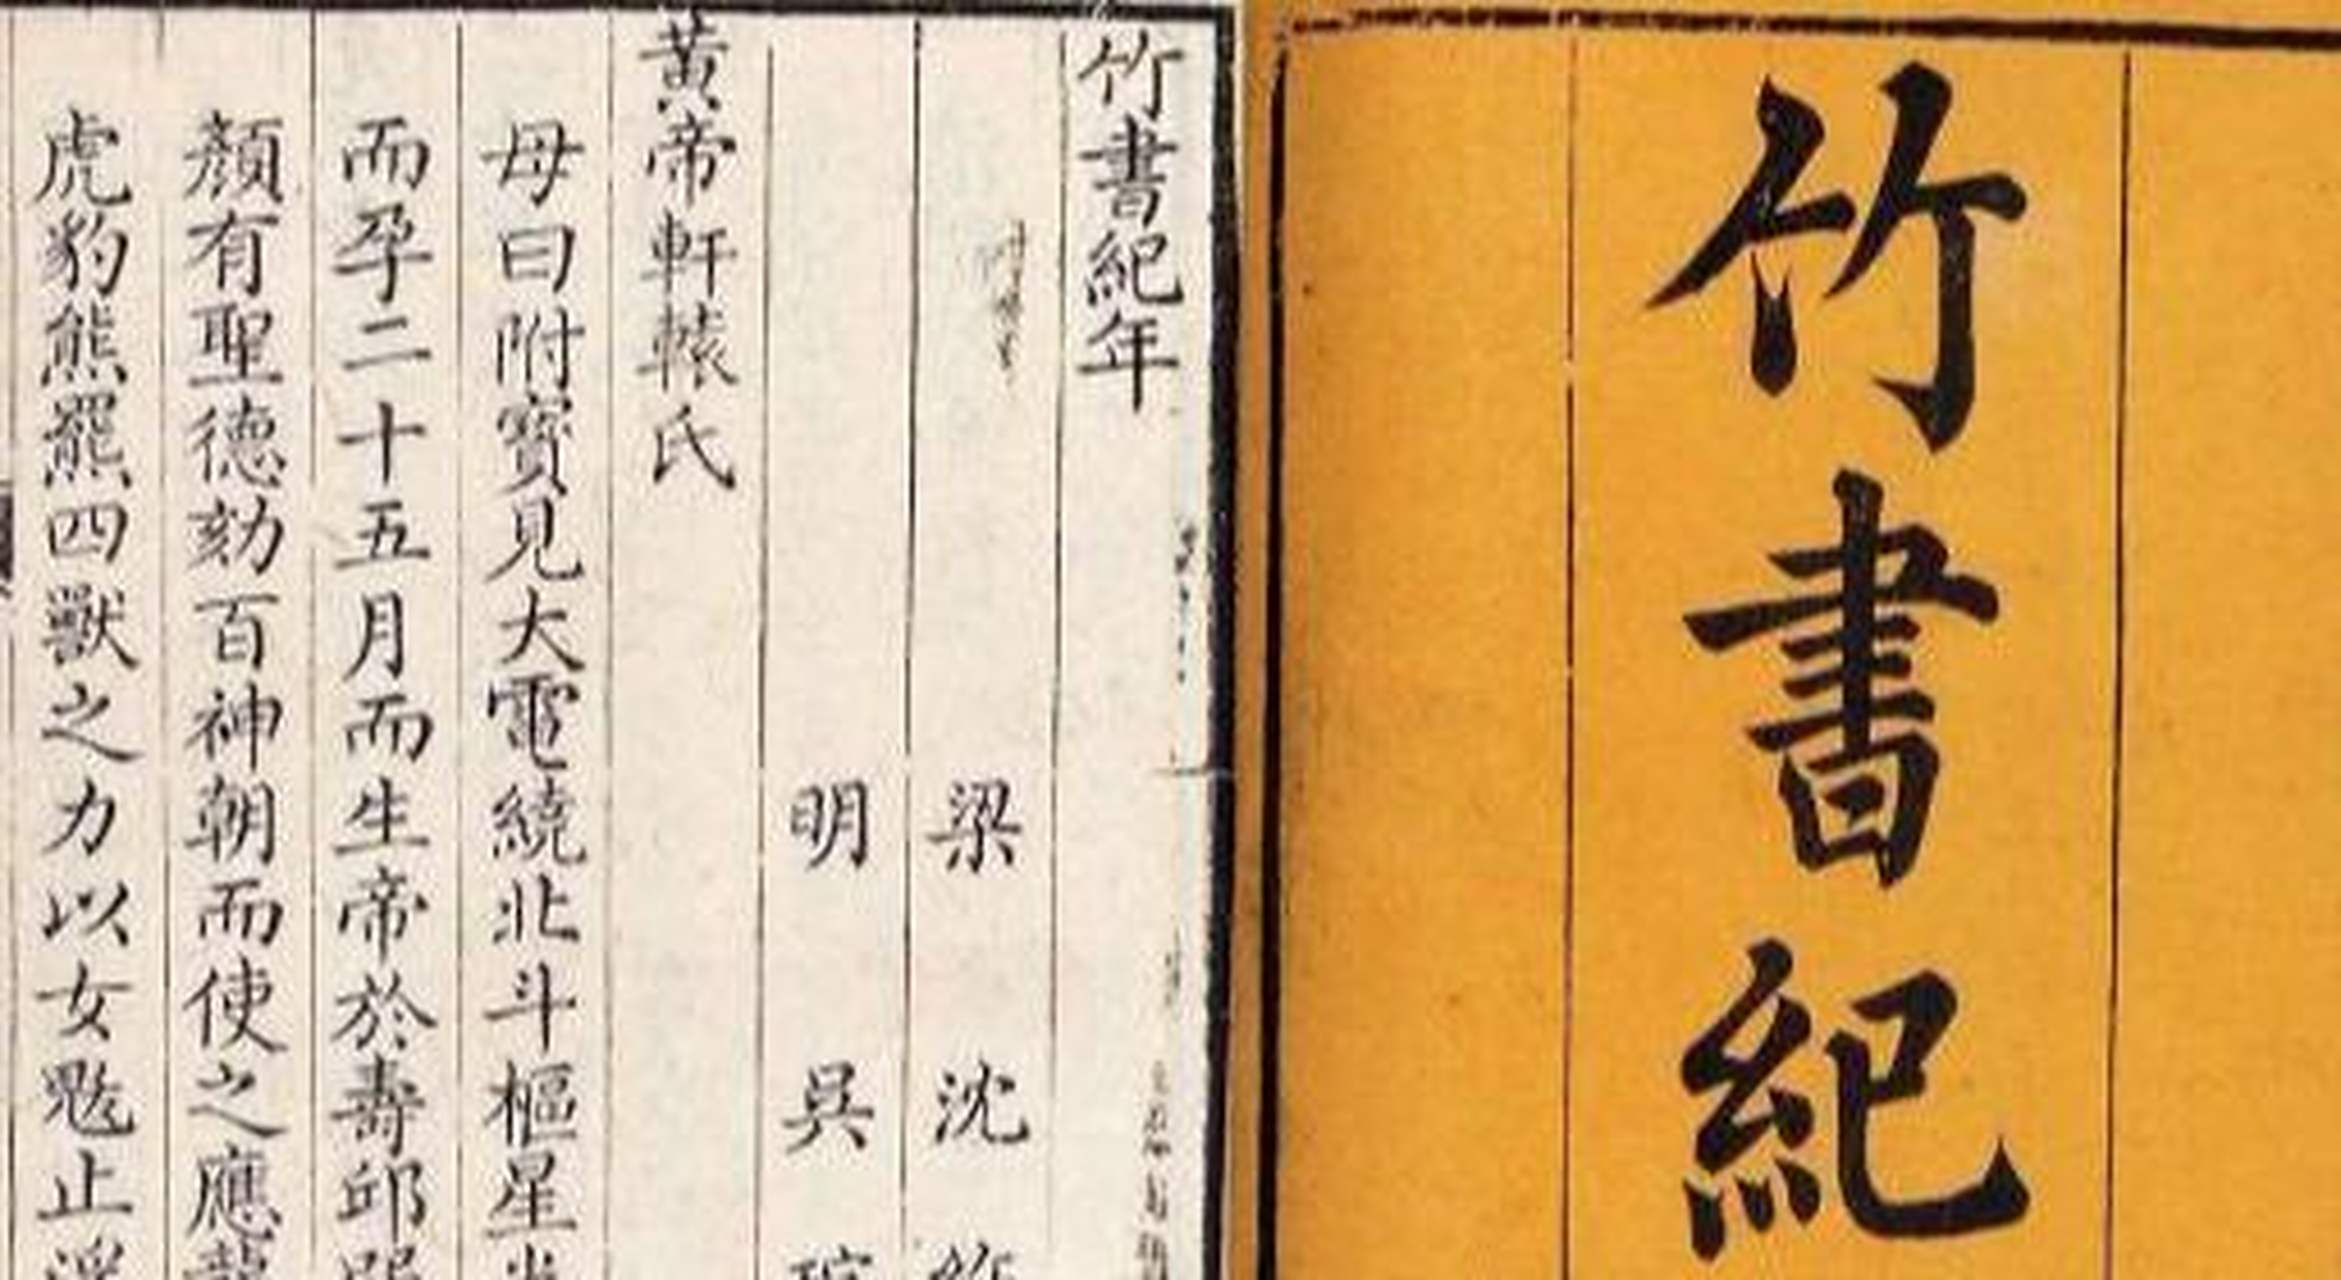 竹書紀
竹書紀年
梁沈
明吳
黃帝軒轅氏
母曰附寶見大電繞北斗樞星
而孕二十五月而生帝於壽邱
顏有聖德劾百神朝而使之應
虎豹熊羆四獸之力以女魃止